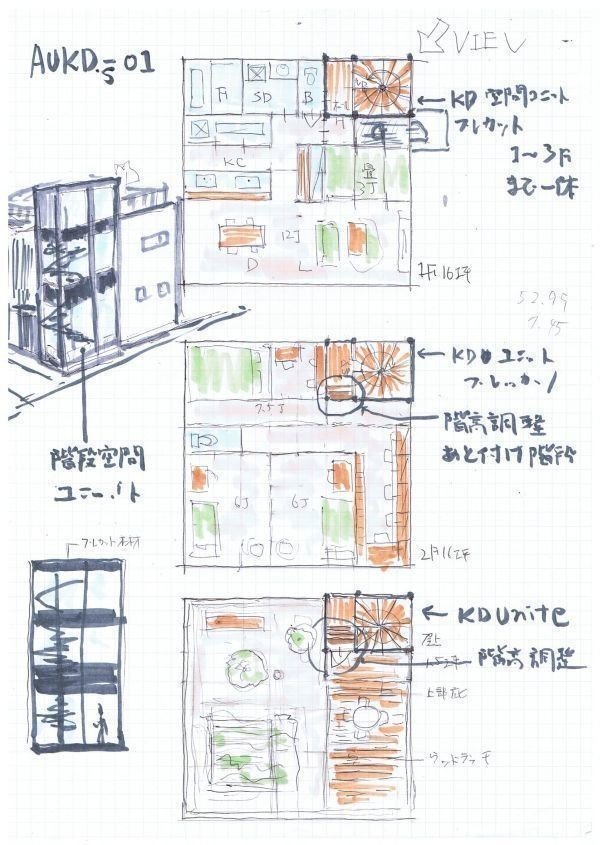 AUKD-S 01
VIEW
KD 空間ユニット
プレカット
1〜3F
まで一体
SD
B
KC
畳
3J
12J
D
L
1F 16坪
52.99
KDユニット
7.5J
階高調整
あと付け階段
階段空間
ユニット
6J
6J
2F 16坪
プレカット木材
KD Unite
屋上
階高調整
ウッドデッキ